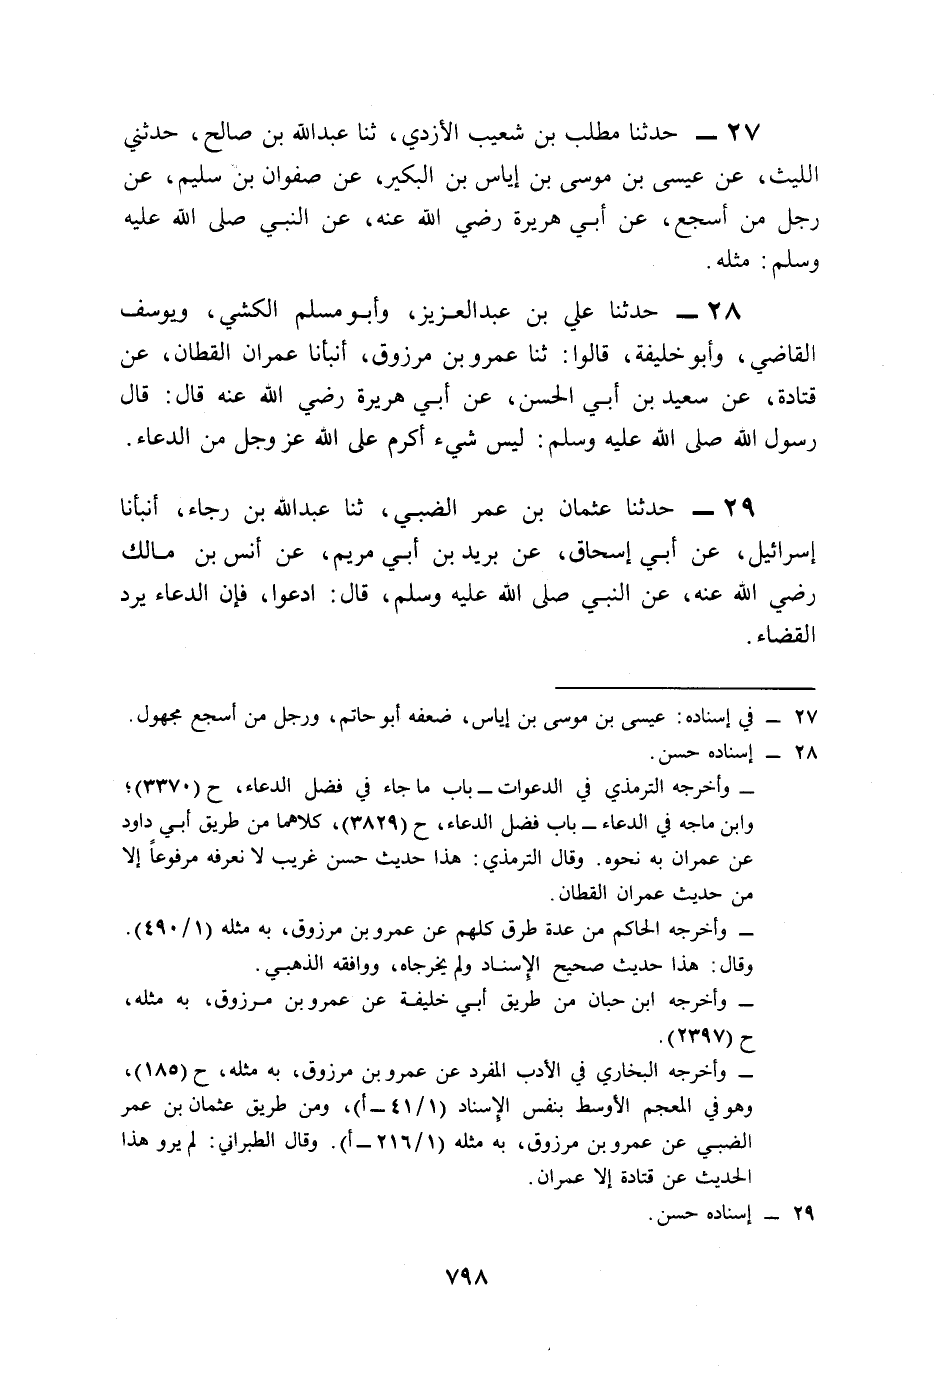 ٢٧ ــ حدثنا مطلب بن شعيب الأزدي، ثنا عبدالله بن صالح، حدثني
الليث، عن عيسى بن موسى بن إياس بن البكير، عن صفوان بن سليم، عن
رجل من أسجع، عن أبي هريرة رضي الله عنه، عن النبي صلى الله عليه
وسلم: مثله.
٢٨ ــ حدثنا علي بن عبدالعزيز، وأبو مسلم الكشي، ويوسف
القاضي، وأبو خليفة، قالوا: ثنا عمرو بن مرزوق، أنبأنا عمران القطان، عن
قتادة، عن سعيد بن أبي الحسن، عن أبي هريرة رضي الله عنه قال: قال
رسول الله صلى الله عليه وسلم: ليس شيء أكرم على الله عز وجل من الدعاء.
٢٩ ــ حدثنا عثمان بن عمر الضبي، ثنا عبدالله بن رجاء، أنبأنا
إسرائيل، عن أبي إسحاق، عن بريد بن أبي مريم، عن أنس بن مالك
رضي الله عنه، عن النبي صلى الله عليه وسلم، قال: ادعوا، فإن الدعاء يرد
القضاء.
٢٧ ــ في إسناده: عيسى بن موسى بن إياس، ضعفه أبو حاتم، ورجل من أسجع مجهول.
٢٨ ــ إسناده حسن.
ــ وأخرجه الترمذي في الدعوات ــ باب ما جاء في فضل الدعاء، ح (٣٣٧٠)؛
وابن ماجه في الدعاء ــ باب فضل الدعاء، ح (٣٨٢٩)، كلاهما من طريق أبي داود
عن عمران به نحوه. وقال الترمذي: هذا حديث حسن غريب لا نعرفه مرفوعاً إلا
من حديث عمران القطان.
ــ وأخرجه الحاكم من عدة طرق كلهم عن عمرو بن مرزوق، به مثله (٤٩٠/١).
وقال: هذا حديث صحيح الإسناد ولم يخرجاه، ووافقه الذهبي.
ــ وأخرجه ابن حبان من طريق أبي خليفة عن عمرو بن مرزوق، به مثله،
ح (٢٣٩٧).
ــ وأخرجه البخاري في الأدب المفرد عن عمرو بن مرزوق، به مثله، ح (١٨٥)،
وهو في المعجم الأوسط بنفس الإسناد (٤١/١ ــ أ)، ومن طريق عثمان بن عمر
الضبي عن عمرو بن مرزوق، به مثله (٢١٦/١ ــ أ). وقال الطبراني: لم يرو هذا
الحديث عن قتادة إلا عمران.
٢٩ ــ إسناده حسن.
٧٩٨